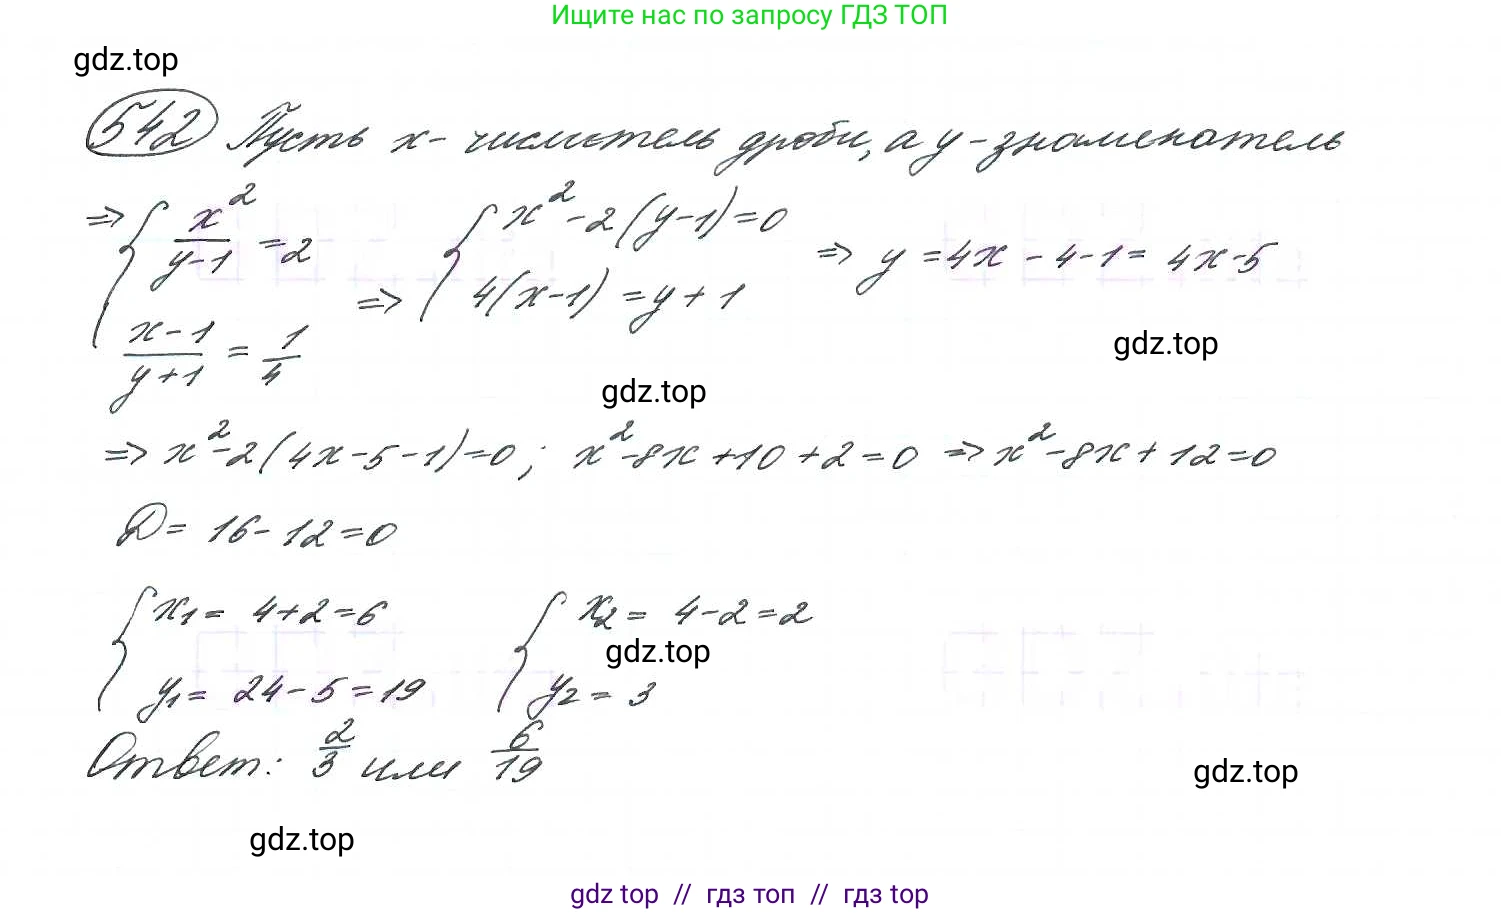 Ищите нас по запросу ГДЗ ТОП
gdz.top
542 Пусть x - числитель дроби, а y - знаменатель
=> { x²/(y-1) = 2 ; (x-1)/(y+1) = 1/4 => { x² - 2(y-1) = 0 ; 4(x-1) = y+1 => y = 4x - 4 - 1 = 4x - 5
gdz.top
gdz.top
=> x² - 2(4x - 5 - 1) = 0; x² - 8x + 10 + 2 = 0 => x² - 8x + 12 = 0
D = 16 - 12 = 0
{ x₁ = 4 + 2 = 6 { x₂ = 4 - 2 = 2
gdz.top
y₁ = 24 - 5 = 19 y₂ = 3
Ответ: 2/3 или 6/19
gdz.top
gdz.top
gdz top // гдз топ // гдз top